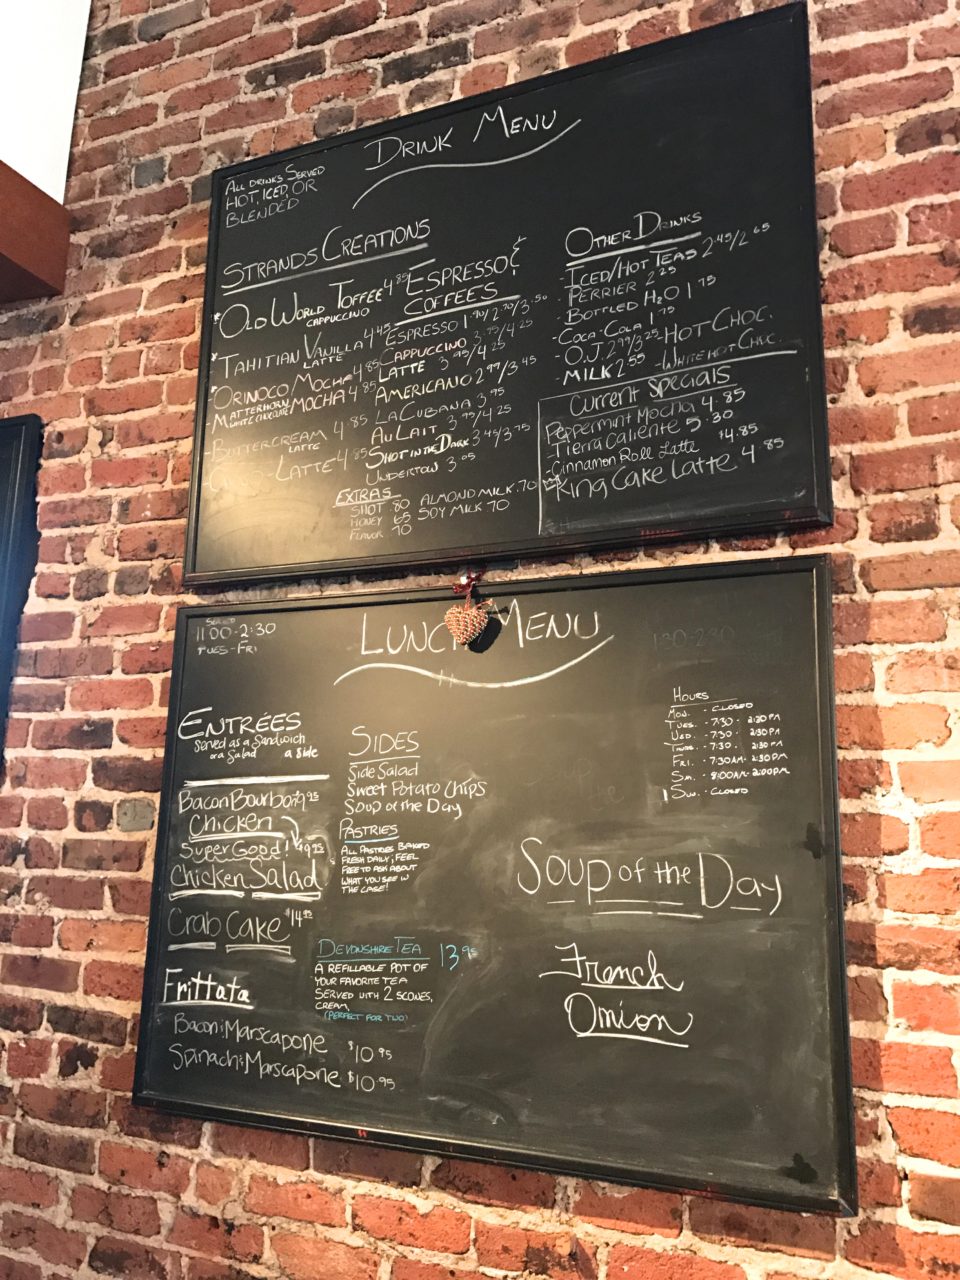 DRINK MENU
ALL DRINKS SERVED
HOT, ICED, OR
BLENDED
STRANDS CREATIONS
OLD WORLD TOFFEE 4.85
CAPPUCCINO
TAHITIAN VANILLA 4.45
LATTE
ORINOCO MOCHA 4.85
MATTERHORN MOCHA 4.85
WHITE CHOCOLATE
BUTTERCREAM 4.85
LATTE
LATTE 4.85
ESPRESSO &
COFFEES
ESPRESSO 1.90/2.70/3.50
CAPPUCCINO 3.95/4.25
LATTE 3.95/4.25
AMERICANO 2.99/3.45
LA CUBANA 3.95
AU LAIT 3.95/4.25
SHOT IN THE DARK 3.45/3.75
UNDERTOW 3.05
EXTRAS
SHOT .80 ALMOND MILK .70
HONEY .65 SOY MILK .70
FLAVOR .70
OTHER DRINKS
- ICED/HOT TEAS 2.45/2.65
- PERRIER 2.25
- BOTTLED H2O 1.75
- COCA-COLA 1.75
- O.J. 2.99/3.25 - HOT CHOC.
- MILK 2.55 - WHITE HOT CHOC.
Current Specials
Peppermint Mocha 4.85
- Tierra Caliente 5.30
- Cinnamon Roll Latte $4.85
King Cake Latte 4.85
LUNCH MENU
SERVED
11:00-2:30
TUES-FRI
1:30-2:30
ENTRÉES
Served as a Sandwich
or a Salad a side
Bacon Bourbon 9.95
Chicken
Super Good! $9.95
Chicken Salad
Crab Cake $14.95
Frittata
Bacon & Marscapone $10.95
Spinach & Marscapone $10.95
SIDES
Side Salad
Sweet Potato Chips
Soup of the Day
PASTRIES
ALL PASTRIES BAKED
FRESH DAILY, FEEL
FREE TO ASK ABOUT
WHAT YOU SEE IN
THE CASE!
DEVONSHIRE TEA 13.95
A REFILLABLE POT OF
YOUR FAVORITE TEA
SERVED WITH 2 SCONES,
CREAM
(PERFECT FOR TWO)
HOURS
MON. - CLOSED
TUES. - 7:30 - 2:30 PM
WED. - 7:30 - 2:30 PM
THURS. - 7:30 - 2:30 PM
FRI. - 7:30AM - 2:30PM
- 8:00AM - 2:00PM
SUN. - CLOSED
SOUP OF THE DAY
French
Onion